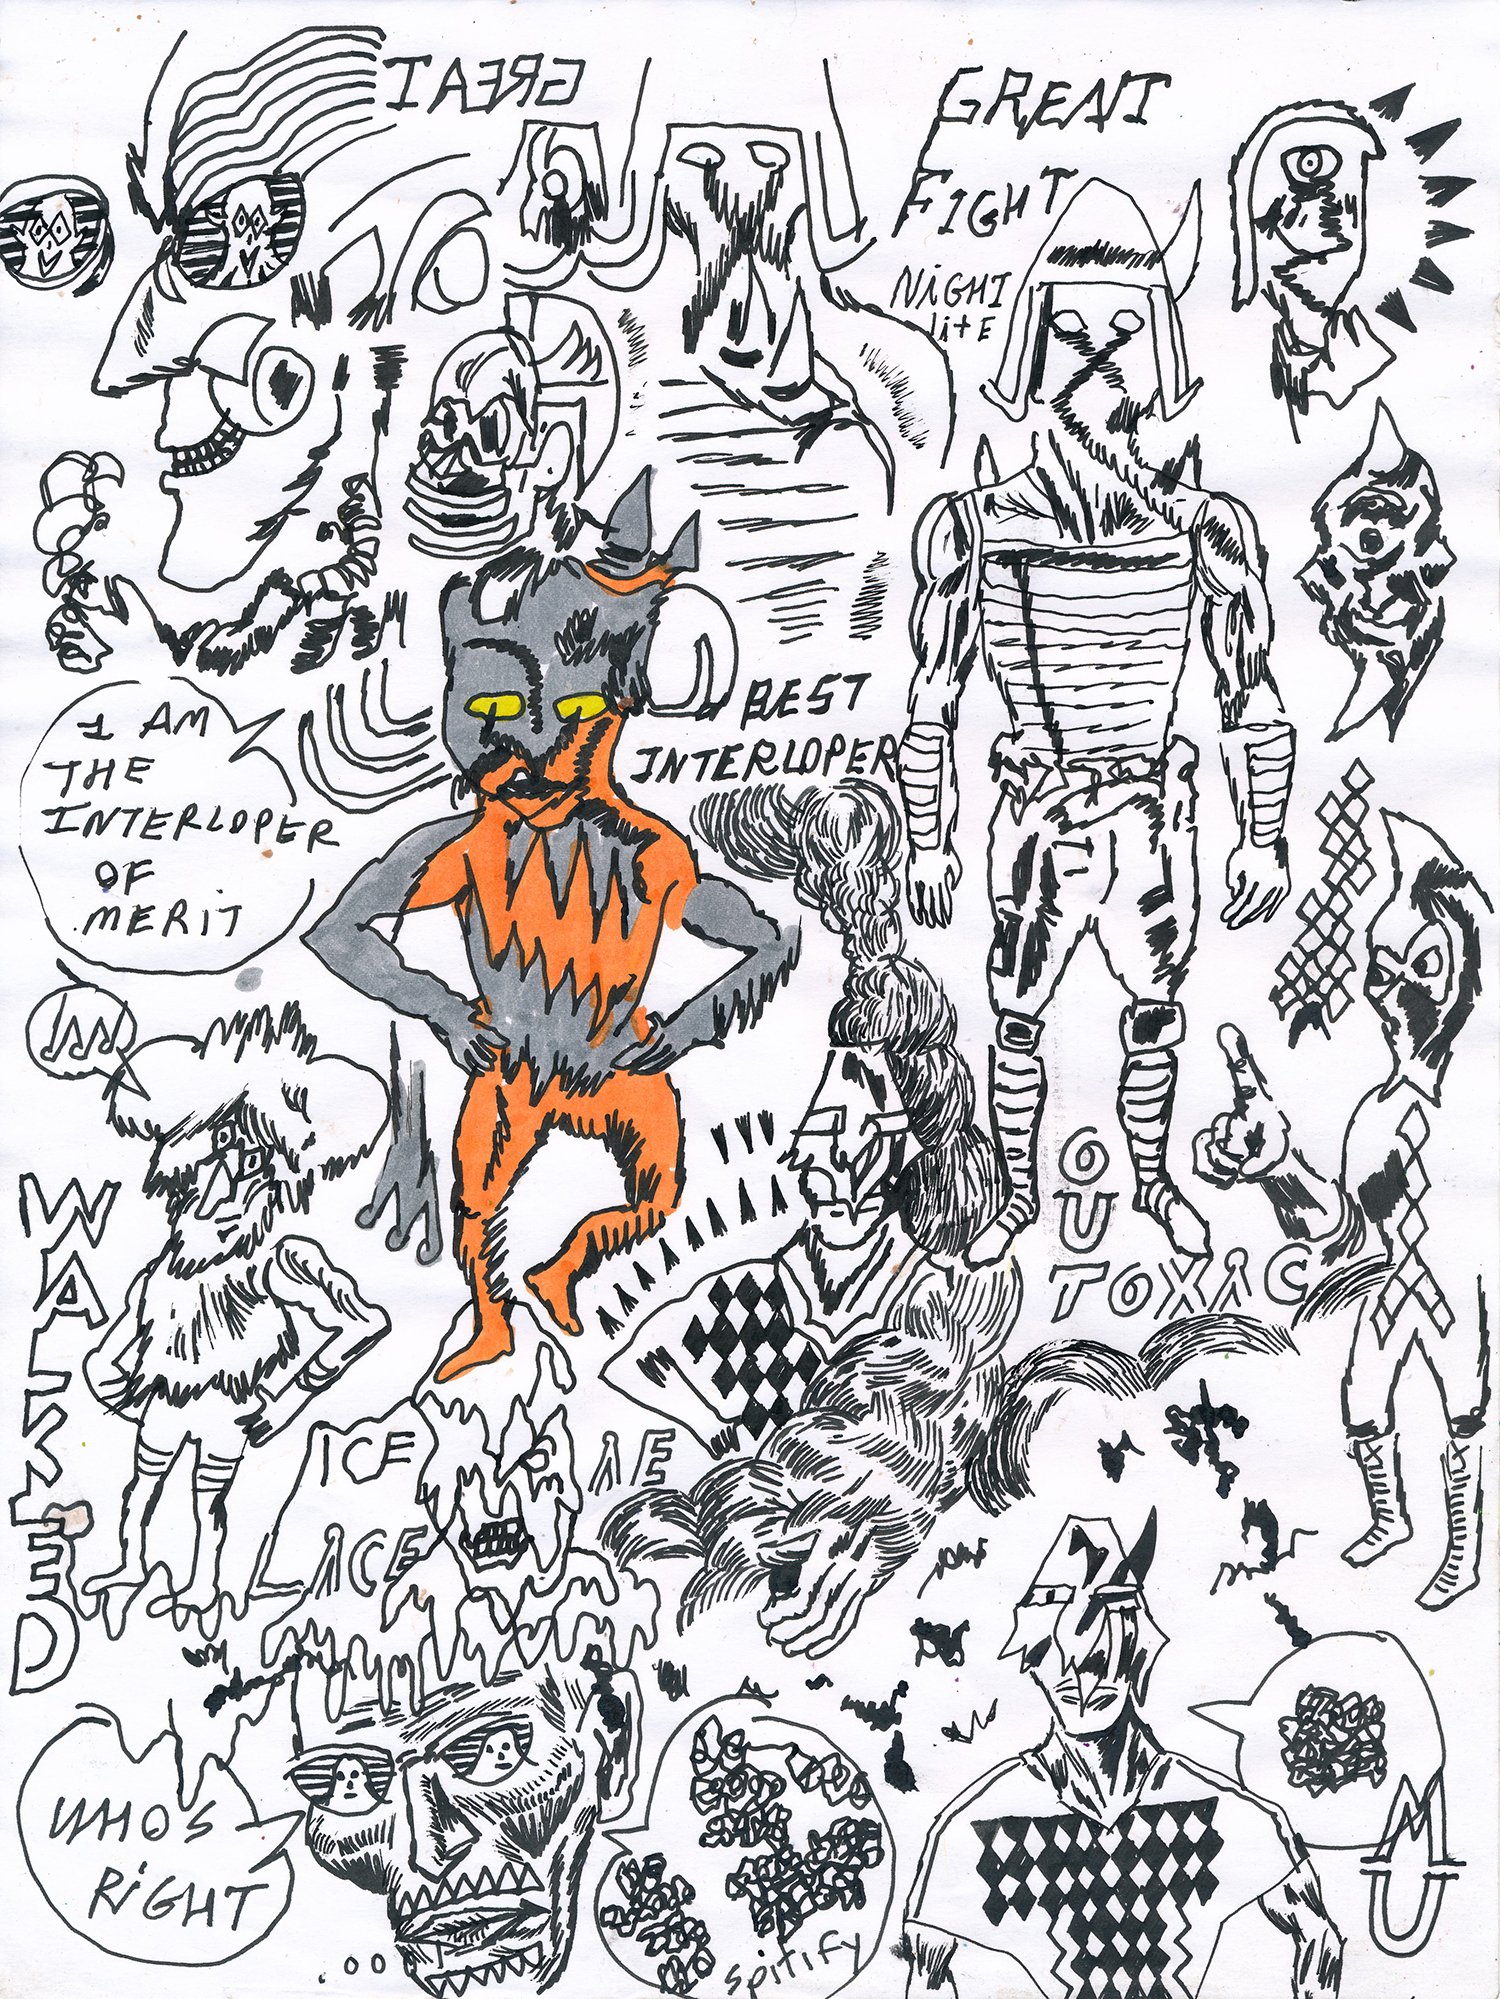 GREAT
GREAT
FIGHT
NiGHT
litE
BEST
INTERLOPER
I AM
THE
INTERLOPER
OF
MERIT
OU
TOXIC
WALKED
ICE
LICE
WHOS
RiGHT
spitify